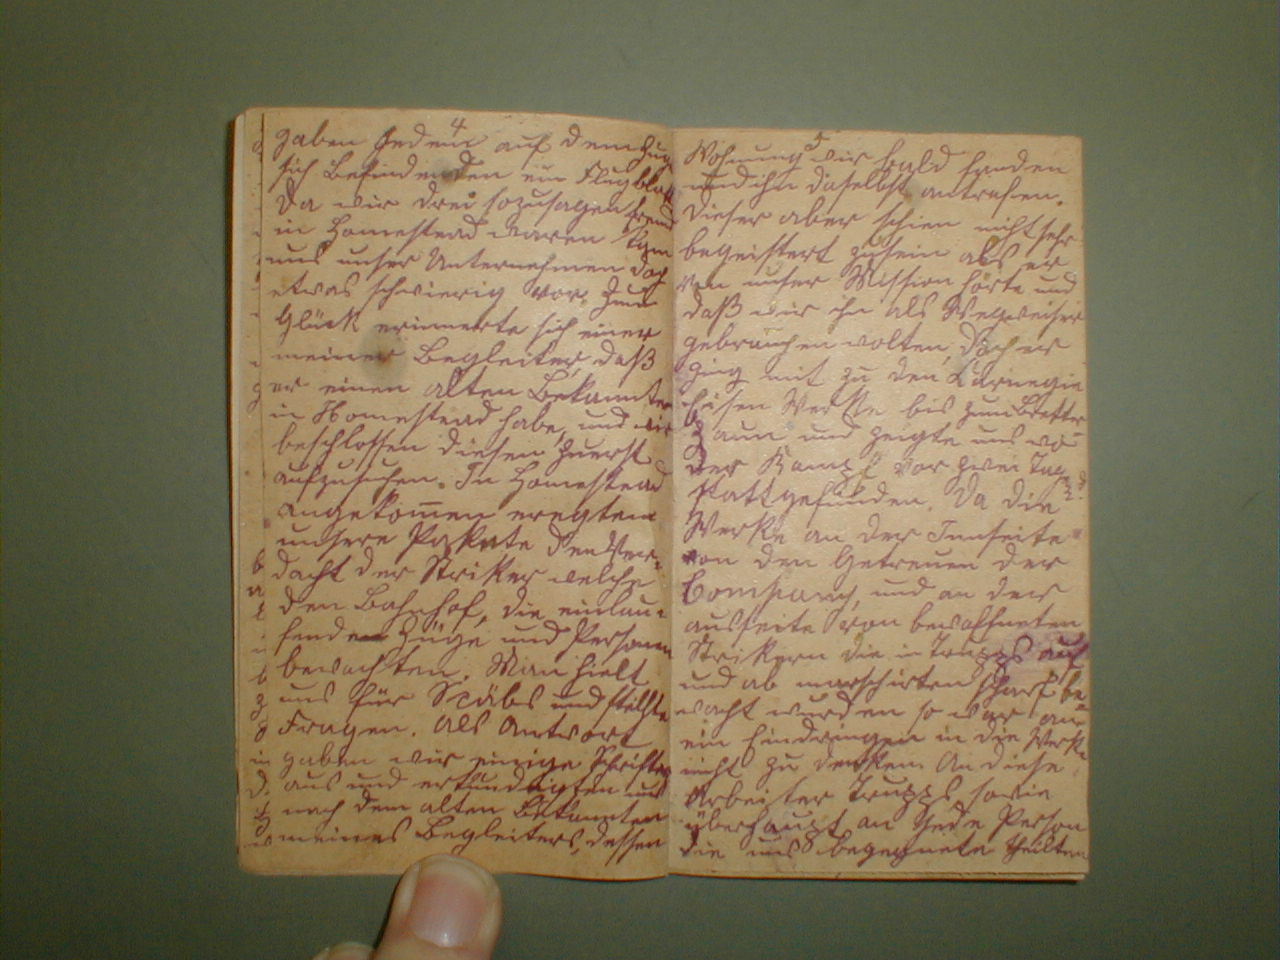 4
gaben Jedem auf dem Zug
sich Befindenden ein Flugblatt
Da wir drei sozusagen fremd
in Homestead waren kam
uns unser Unternehmen doch
etwas schwierig vor. Zum
Glück erinnerte sich einer
meiner Begleiter, daß
er einen alten Bekannten
in Homestead habe, und wir
beschlossen diesen zuerst
aufzusuchen. In Homestead
angekom̅en eregten
unsere Pakete den Ver-
dacht der Striker welche
den Bahnhof, die einlau-
fenden Züge und Personen
bewachten. Man hielt
uns für Scäbs und stellte
Fragen. Als Antwort
gaben wir einige Schriften
aus und erkundigten uns
nach dem alten Bekannten
meines Begleiters, dessen
5
Wohnung wir bald fanden
und ihn daselbst antrafen.
Dieser aber schien nicht sehr
begeistert zu sein als er
von unser Mission hörte und
daß wir ihn als Wegweiser
gebrauchen wolten, doch er
ging mit zu den Carnegie
Eisen Werke bis zum Bretter
Zaun und zeigte uns wo
der Kampf vor zwei Tag
stattgefunden. Da die
Werke an der Innseite
von den Getreuen der
Company, und an der
ausseite von bewaffneten
Strikern die in Trupps auf
und ab marschirten scharf be
wacht wurden so war an
ein Eindringen in die Werke
nicht zu denken. An diese
Arbeiter Trupps sowie
überhaupt an Jede Person
die uns begegnete theilten